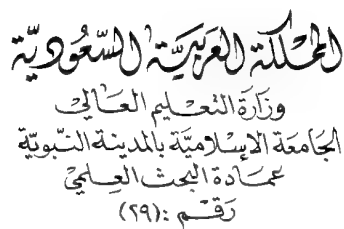 المملكة العربيّة السّعوديّة
وزارة التعليم العالي
الجامعة الإسلاميّة بالمدينة النّبويّة
عمادة البحث العلمي
رَقم : (٢٩)